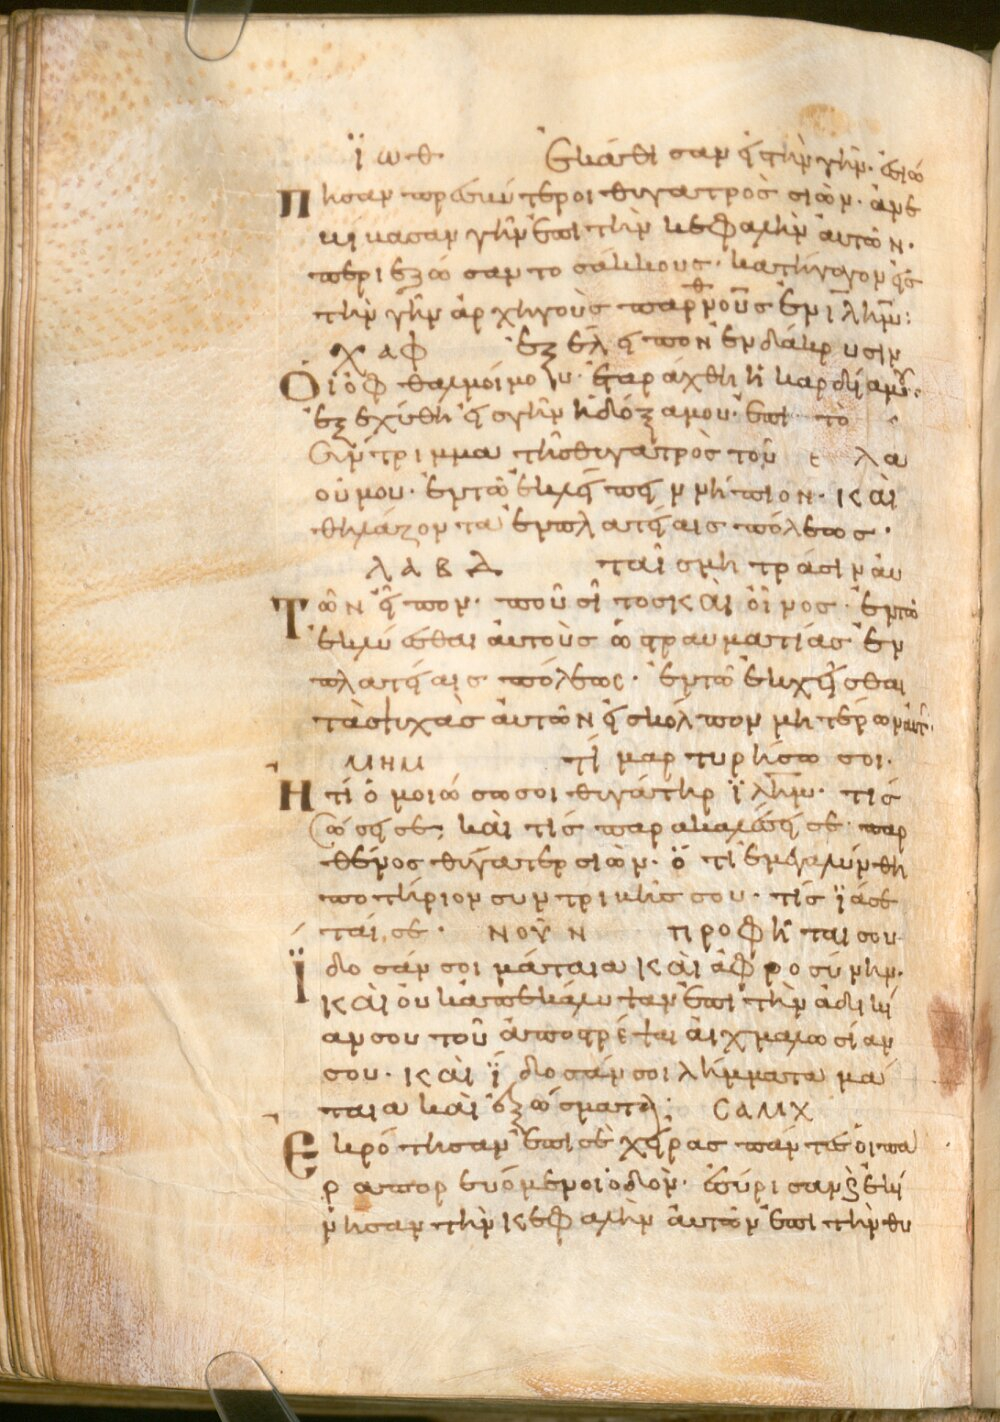 ϊωθ· Ἐκάθισαν εἰς τὴν γῆν· ἐσιώ
πησαν πρεσβύτεροι θυγατρὸς σιὼν· ἀνε
βίβασαν γῆν ἐπὶ τὴν κεφαλὴν αὐτῶν·
περιεζώσαντο σάκκους· κατήγαγον εἰς
τὴν γῆν ἀρχηγοὺς παρθένους ἐν ϊλημ:
χαφ ἐξέλειπον ἐν δάκρυσιν
Οἱ ὀφθαλμοί μου· ἐταράχθη ἡ καρδία μου·
ἐξεχύθη εἰς γῆν ἡ δόξα μου· ἐπὶ τὸ
Σύντριμμα τῆς θυγατρὸς τοῦ λα
οῦ μου· ἐν τῶ ἐκλείπειν νήπιον· καὶ
θηλάζοντα ἐν πλατείαις πόλεως·
λαβδ ταῖς μητράσιν αὐ
Τῶν εἶπον· ποῦ σῖτος καὶ οἶνος· ἐν τῶ
ἐκλύεσθαι αὐτοὺς ὡς τραυματίας ἐν
πλατείαις πόλεως· ἐν τῶ ἐκχεῖσθαι
τὰς ψυχὰς αὐτῶν εἰς κόλπον μητέρων αὐτ·
μημ τί μαρτυρήσω σοι·
Ἢ τί ὁμοιώσω σοι θυγάτηρ ϊλημ· τίς
Σώσει σε; καὶ τίς παρακαλέσει σε· παρ
θένος θύγατερ σιὼν· ὅτι ἐμεγαλύνθη
ποτήριον συντριβῆς σου· τίς ϊάσε
ταί σε· νοῦν προφῆται σου
Ϊδοσάν σοι μάταια καὶ ἀφροσύνην·
καὶ οὐκ ἀπεκάλυψαν ἐπὶ τὴν ἀδικί
αν σου τοῦ ἀποστρέψαι αἰχμαλωσίαν
σου· καὶ ϊδοσάν σοι λήμματα μά
ταια καὶ ἐξώσματα: σαμχ
Ἐκρότησαν ἐπὶ σὲ χεῖρας πάντες οἱ πα
ραπορευόμενοι ὁδόν· ἐσύρισαν ϗ ἐκί
νησαν τὴν κεφαλὴν αὐτῶν ἐπὶ τὴν θυ